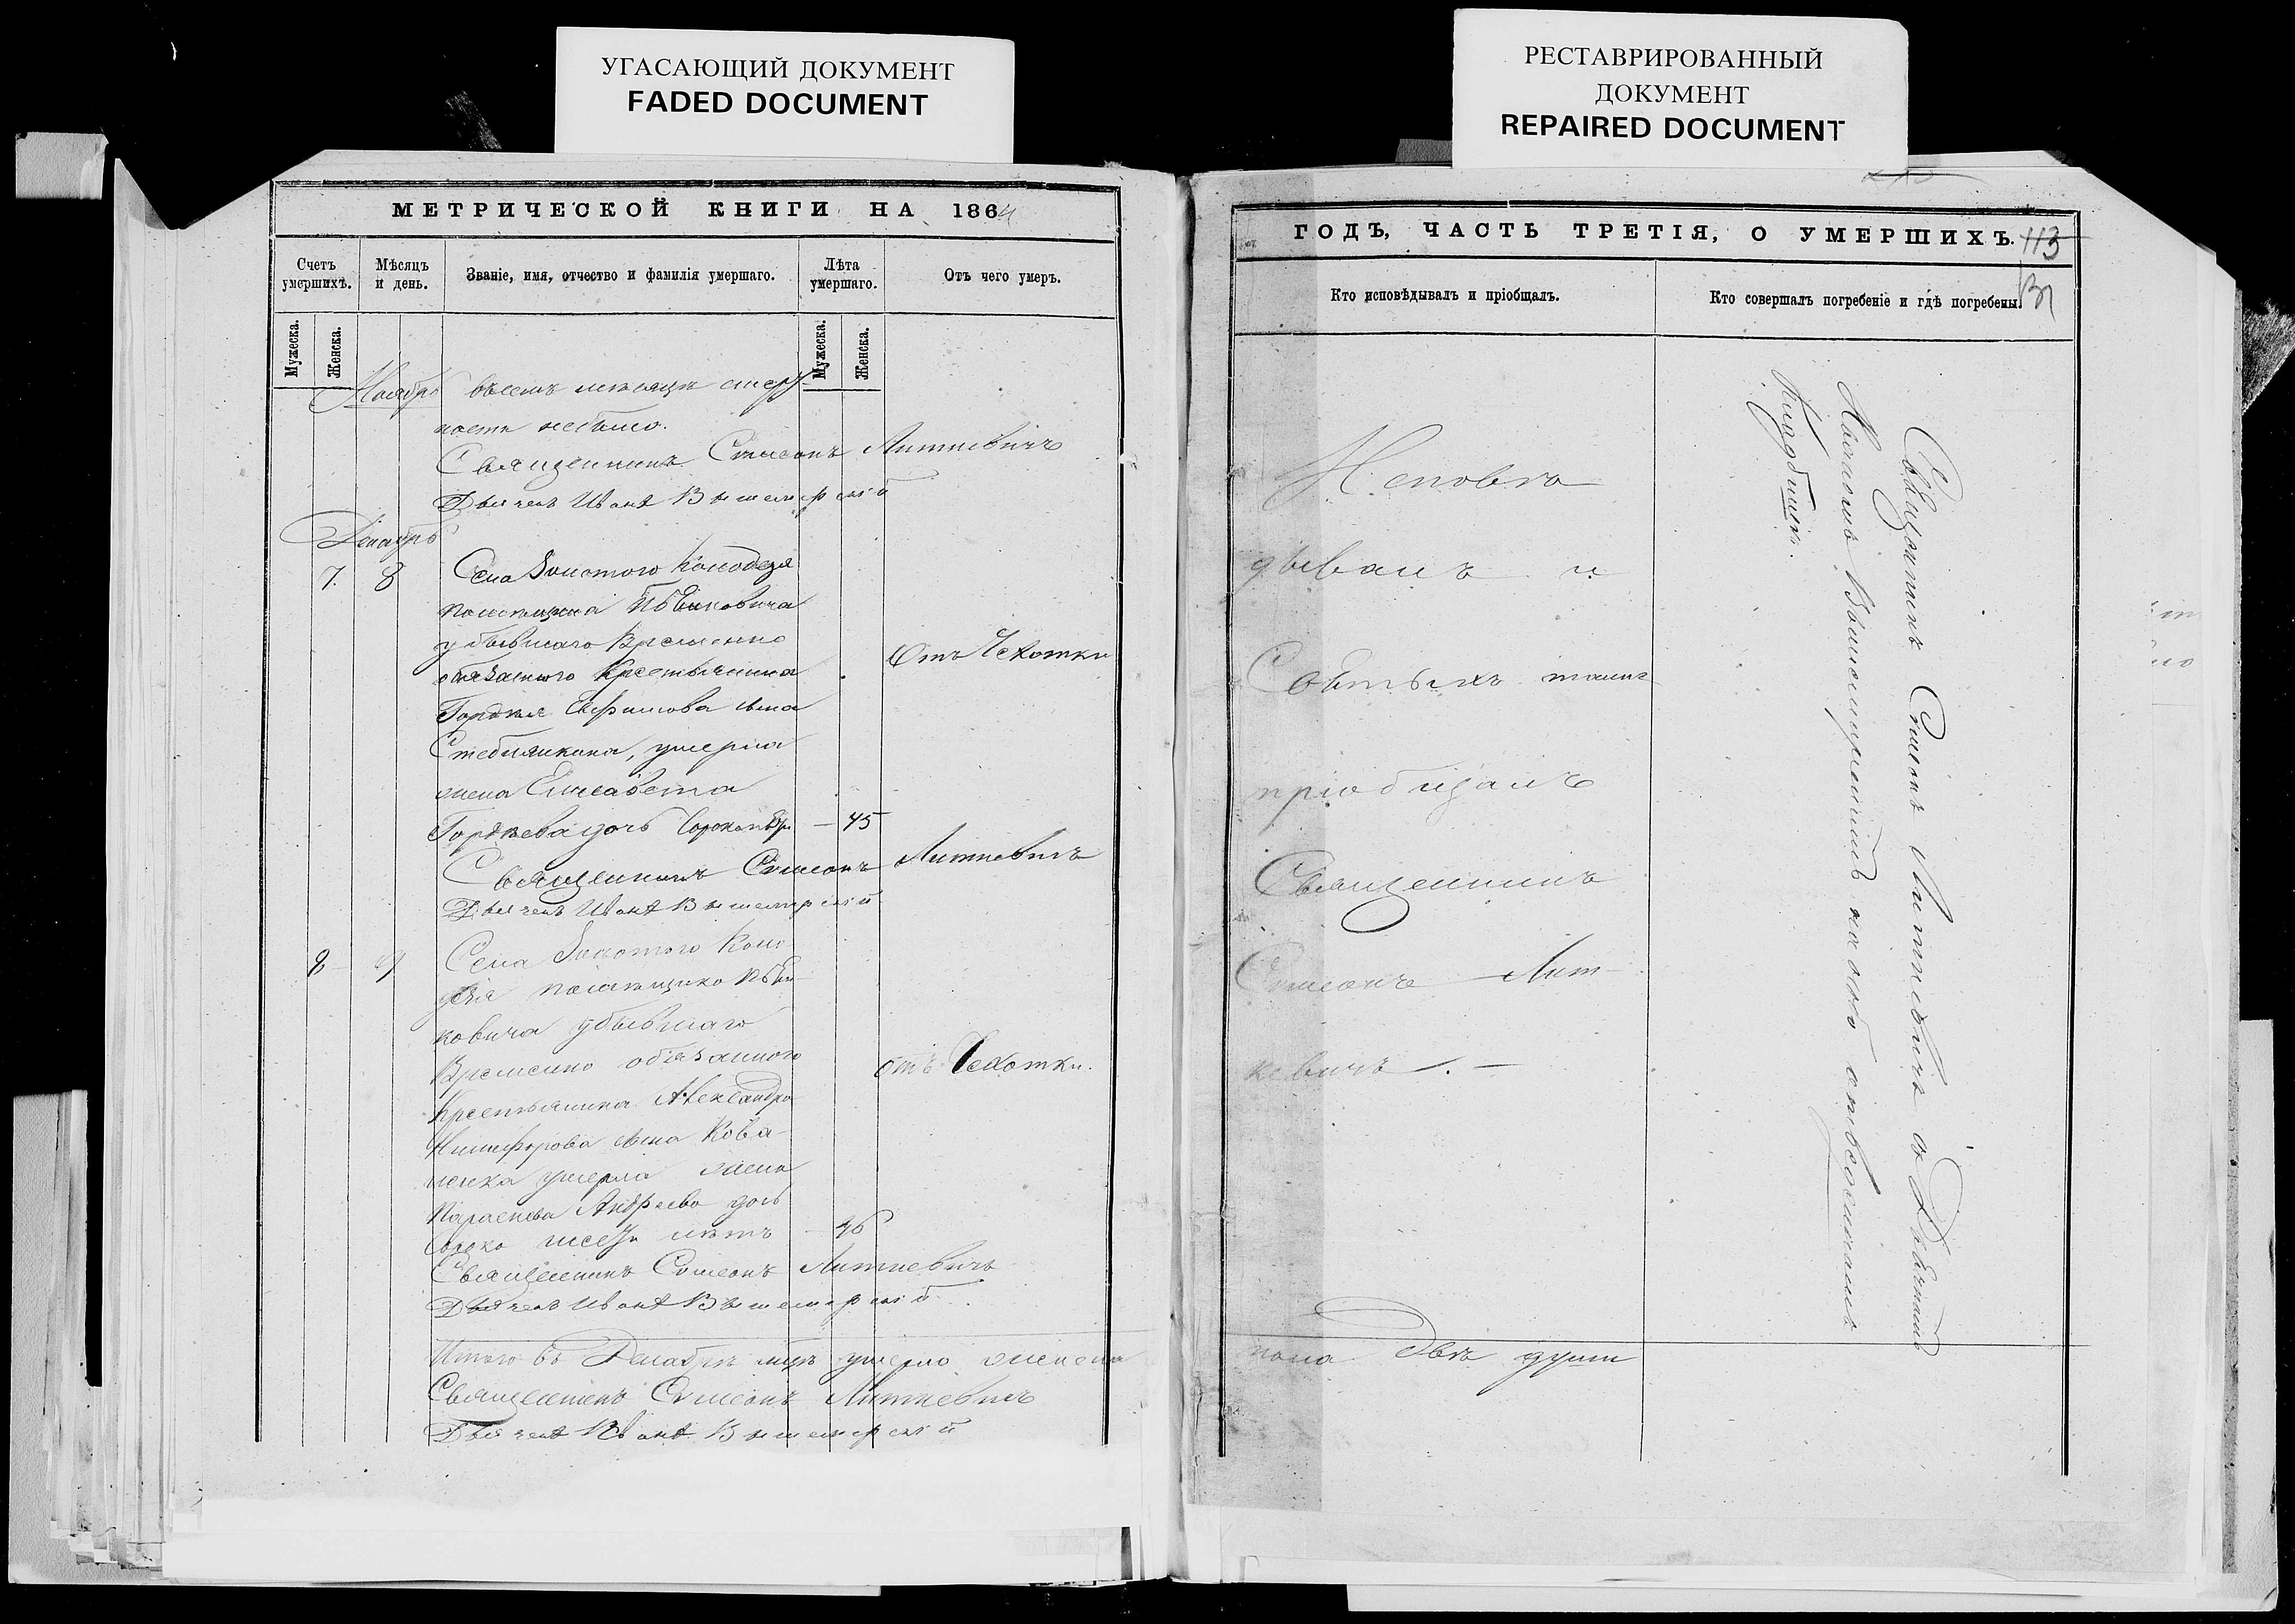 УГАСАЮЩИЙ ДОКУМЕНТ
FADED DOCUMENT
РЕСТАВРИРОВАННЫЙ
ДОКУМЕНТ
REPAIRED DOCUMENT
МЕТРИЧЕСКОЙ КНИГИ НА 1864
Счетъ умершихъ.
Мѣсяцъ и день.
Званіе, имя, отчество и фамилія умершаго.
Лѣта умершаго.
Отъ чего умеръ.
Мужеска.
Женска.
Мужеска.
Женска.
Ноябрь въ семъ мѣсяцѣ смерт-
ности небыло.
Священникъ Симеонъ Литкевичъ
Дьячекъ Иванъ Вышемирскій
Декабрь
7. 8 Села Золотого Колодезя
помѣщика
убывшаго Временно
обязанного Крестьянина Отъ Чехотки
Гордѣя Ефимова сына
умерла
жена Елисавета
Гордѣева дочь — 45
Священникъ Симеонъ Литкевичъ
Дьячекъ Иванъ Вышемирскій
8 9 Села Золотого Коло
дезя помѣщика
ковича убывшаго
Временно обязанного отъ Чехотки.
Крестьянина Александра
Никифорова сына Кова-
ленка умерла жена
Параскева Андреева дочь
Сорока шести лѣтъ — 46
Священникъ Симеонъ Литкевичъ
Дьячекъ Иванъ Вышемирскій
Итого въ Декабрѣ мцѣ умерло женска
Священникъ Симеонъ Литкевичъ
Дьячекъ Иванъ Вышемирскій
ГОДЪ, ЧАСТЬ ТРЕТІЯ, О УМЕРШИХЪ. 113
Кто исповѣдывалъ и пріобщалъ.
Кто совершалъ погребеніе и гдѣ погребены.
Исповѣ
дывалъ и
Святыхъ таинъ
пріобщалъ
Священникъ
Симеонъ Лит-
кевичъ. —
пола двѣ души
Священникъ Симеонъ Литкевичъ съ Дьячкомъ
Иваномъ Вышемирскимъ на
Кладбищѣ.